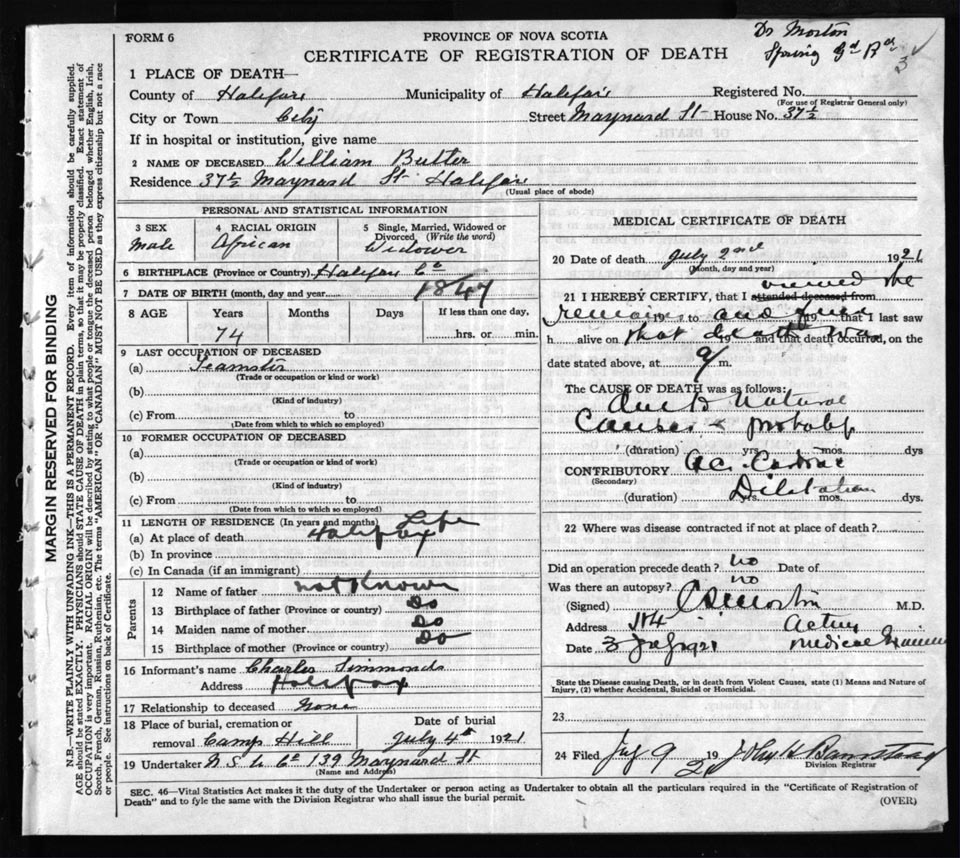 FORM 6
PROVINCE OF NOVA SCOTIA
CERTIFICATE OF REGISTRATION OF DEATH
Dr Morton
Spring Gd Rd
3
1 PLACE OF DEATH—
County of Halifax Municipality of Halifax Registered No.
(For use of Registrar General only)
City or Town City Street Maynard St House No. 37½
If in hospital or institution, give name
2 NAME OF DECEASED William Butler
Residence 37½ Maynard St Halifax
(Usual place of abode)
PERSONAL AND STATISTICAL INFORMATION
3 SEX 4 RACIAL ORIGIN 5 Single, Married, Widowed or
Divorced (Write the word)
Male African Widower
6 BIRTHPLACE (Province or Country) Halifax Co
7 DATE OF BIRTH (month, day and year) 1847
8 AGE Years Months Days If less than one day,
74 hrs. or min.
9 LAST OCCUPATION OF DECEASED
(a) Teamster
(Trade or occupation or kind or work)
(b)
(Kind of industry)
(c) From to
(Date from which to which so employed)
10 FORMER OCCUPATION OF DECEASED
(a)
(Trade or occupation or kind of work)
(b)
(Kind of industry)
(c) From to
(Date from which to which so employed)
11 LENGTH OF RESIDENCE (In years and months) Life
(a) At place of death Halifax
(b) In province
(c) In Canada (if an immigrant)
Parents
12 Name of father not Known
13 Birthplace of father (Province or country) Do
14 Maiden name of mother Do
15 Birthplace of mother (Province or country) Do
16 Informant's name Charles Simmonds
Address Halifax
17 Relationship to deceased None
18 Place of burial, cremation or
removal Camp Hill
Date of burial
July 4th 1921
19 Undertaker N S U Co 139 Maynard St
(Name and Address)
MEDICAL CERTIFICATE OF DEATH
20 Date of death July 2nd 1921
(Month, day and year)
viewed the
21 I HEREBY CERTIFY, that I attended deceased from
remains 19 to and find 19 that I last saw
h alive on that death was 19 and that death occurred, on the
date stated above, at 9/ m.
The CAUSE OF DEATH was as follows:
due to Natural
Causes & probably
(duration) yrs. mos. dys
CONTRIBUTORY ac. Cardiac
(Secondary)
Dilatation
(duration) yrs. mos. dys.
22 Where was disease contracted if not at place of death?
Did an operation precede death? no Date of
Was there an autopsy? no
(Signed) Morton M.D.
Address Acting
Date 3 July 1921 Medical Examiner
State the Disease causing Death, or in death from Violent Causes, state (1) Means and Nature of
Injury, (2) whether Accidental, Suicidal or Homicidal.
23
24 Filed July 9 1921 John H Barnstead
Division Registrar
SEC. 46—Vital Statistics Act makes it the duty of the Undertaker or person acting as Undertaker to obtain all the particulars required in the "Certificate of Registration of
Death" and to fyle the same with the Division Registrar who shall issue the burial permit.
(OVER)
MARGIN RESERVED FOR BINDING
N.B.—WRITE PLAINLY WITH UNFADING INK—THIS IS A PERMANENT RECORD. Every item of information should be carefully supplied.
AGE should be stated EXACTLY. PHYSICIANS should STATE CAUSE OF DEATH in plain terms, so that it may be properly classified. Exact statement of
OCCUPATION is very important. RACIAL ORIGIN will be described by stating to what people or tongue the deceased person belonged whether English, Irish,
Scotch, French, German, Russian, Ruthenian, etc. The terms "AMERICAN" OR "CANADIAN" MUST NOT BE USED as they express citizenship but not a race
or people. See instructions on back of Certificate.